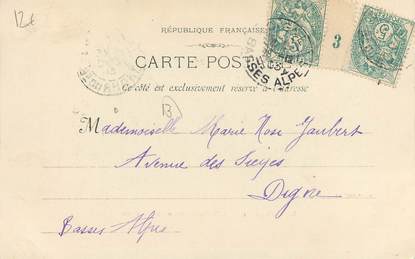 12e
RÉPUBLIQUE FRANÇAISE
3
CARTE POST
BASSES ALPES
Ce côté est exclusivement réservé à l'adresse
B
Mademoiselle Marie Rose Jaubert
Avenue des Sieyes
Digne
Basses Alpes